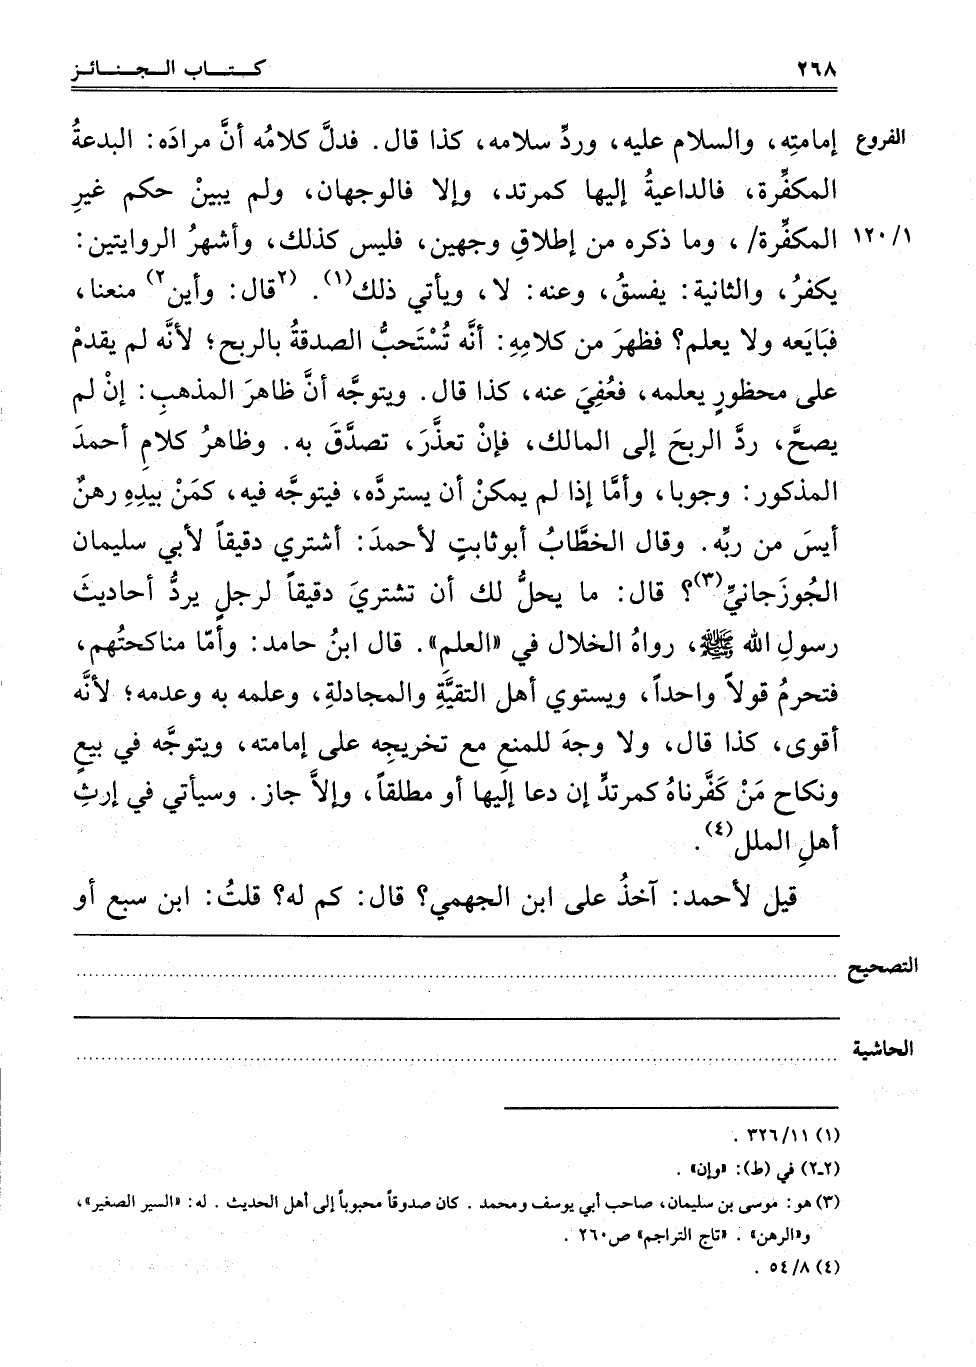 ٢٦٨ كـتـاب الـجـنـائـز
الفروع إمامتِه، والسلام عليه، وردِّ سلامه، كذا قال. فدلَّ كلامُه أنَّ مرادَه: البدعةُ
المكفِّرة، فالداعيةُ إليها كمرتد، وإلا فالوجهان، ولم يبينْ حكم غيرِ
١٢٠/١ المكفِّرة/، وما ذكره من إطلاقِ وجهين، فليس كذلك، وأشهرُ الروايتين:
يكفرُ، والثانية: يفسقُ، وعنه: لا، ويأتي ذلك(١). (٢قال: وأين٢) منعنا،
فبَايَعه ولا يعلم؟ فظهرَ من كلامِهِ: أنَّه تُسْتَحبُّ الصدقةُ بالربح؛ لأنَّه لم يقدمْ
على محظورٍ يعلمه، فعُفِيَ عنه، كذا قال. ويتوجَّه أنَّ ظاهرَ المذهبِ: إنْ لم
يصحَّ، ردَّ الربحَ إلى المالك، فإنْ تعذَّرَ، تصدَّقَ به. وظاهرُ كلامِ أحمدَ
المذكور: وجوبا، وأمَّا إذا لم يمكنْ أن يستردَّه، فيتوجَّه فيه، كمَنْ بيدِهِ رهنٌ
أيسَ من ربِّه. وقال الخطَّابُ أبوثابتٍ لأحمدَ: أشتري دقيقاً لأبي سليمان
الجُوزَجانيِّ(٣)؟ قال: ما يحلُّ لك أن تشتريَ دقيقاً لرجلٍ يردُّ أحاديثَ
رسولِ الله ﷺ، رواهُ الخلال في «العلم». قال ابنُ حامد: وأمّا مناكحتُهم،
فتحرمُ قولاً واحداً، ويستوي أهل التقيَّةِ والمجادلةِ، وعلمه به وعدمه؛ لأنَّه
أقوى، كذا قال، ولا وجهَ للمنعِ مع تخريجِه على إمامته، ويتوجَّه في بيعٍ
ونكاح مَنْ كَفَّرناهُ كمرتدٍّ إن دعا إليها أو مطلقاً، وإلاَّ جاز. وسيأتي في إرثِ
أهلِ الملل(٤).
قيل لأحمد: آخذُ على ابن الجهمي؟ قال: كم له؟ قلتُ: ابن سبع أو
التصحيح
الحاشية
(١) ٣٢٦/١١ .
(٢-٢) في (ط): «وإن» .
(٣) هو: موسى بن سليمان، صاحب أبي يوسف ومحمد . كان صدوقاً محبوباً إلى أهل الحديث . له: «السير الصغير»،
و«الرهن» . «تاج التراجم» ص٢٦٠ .
(٤) ٥٤/٨ .